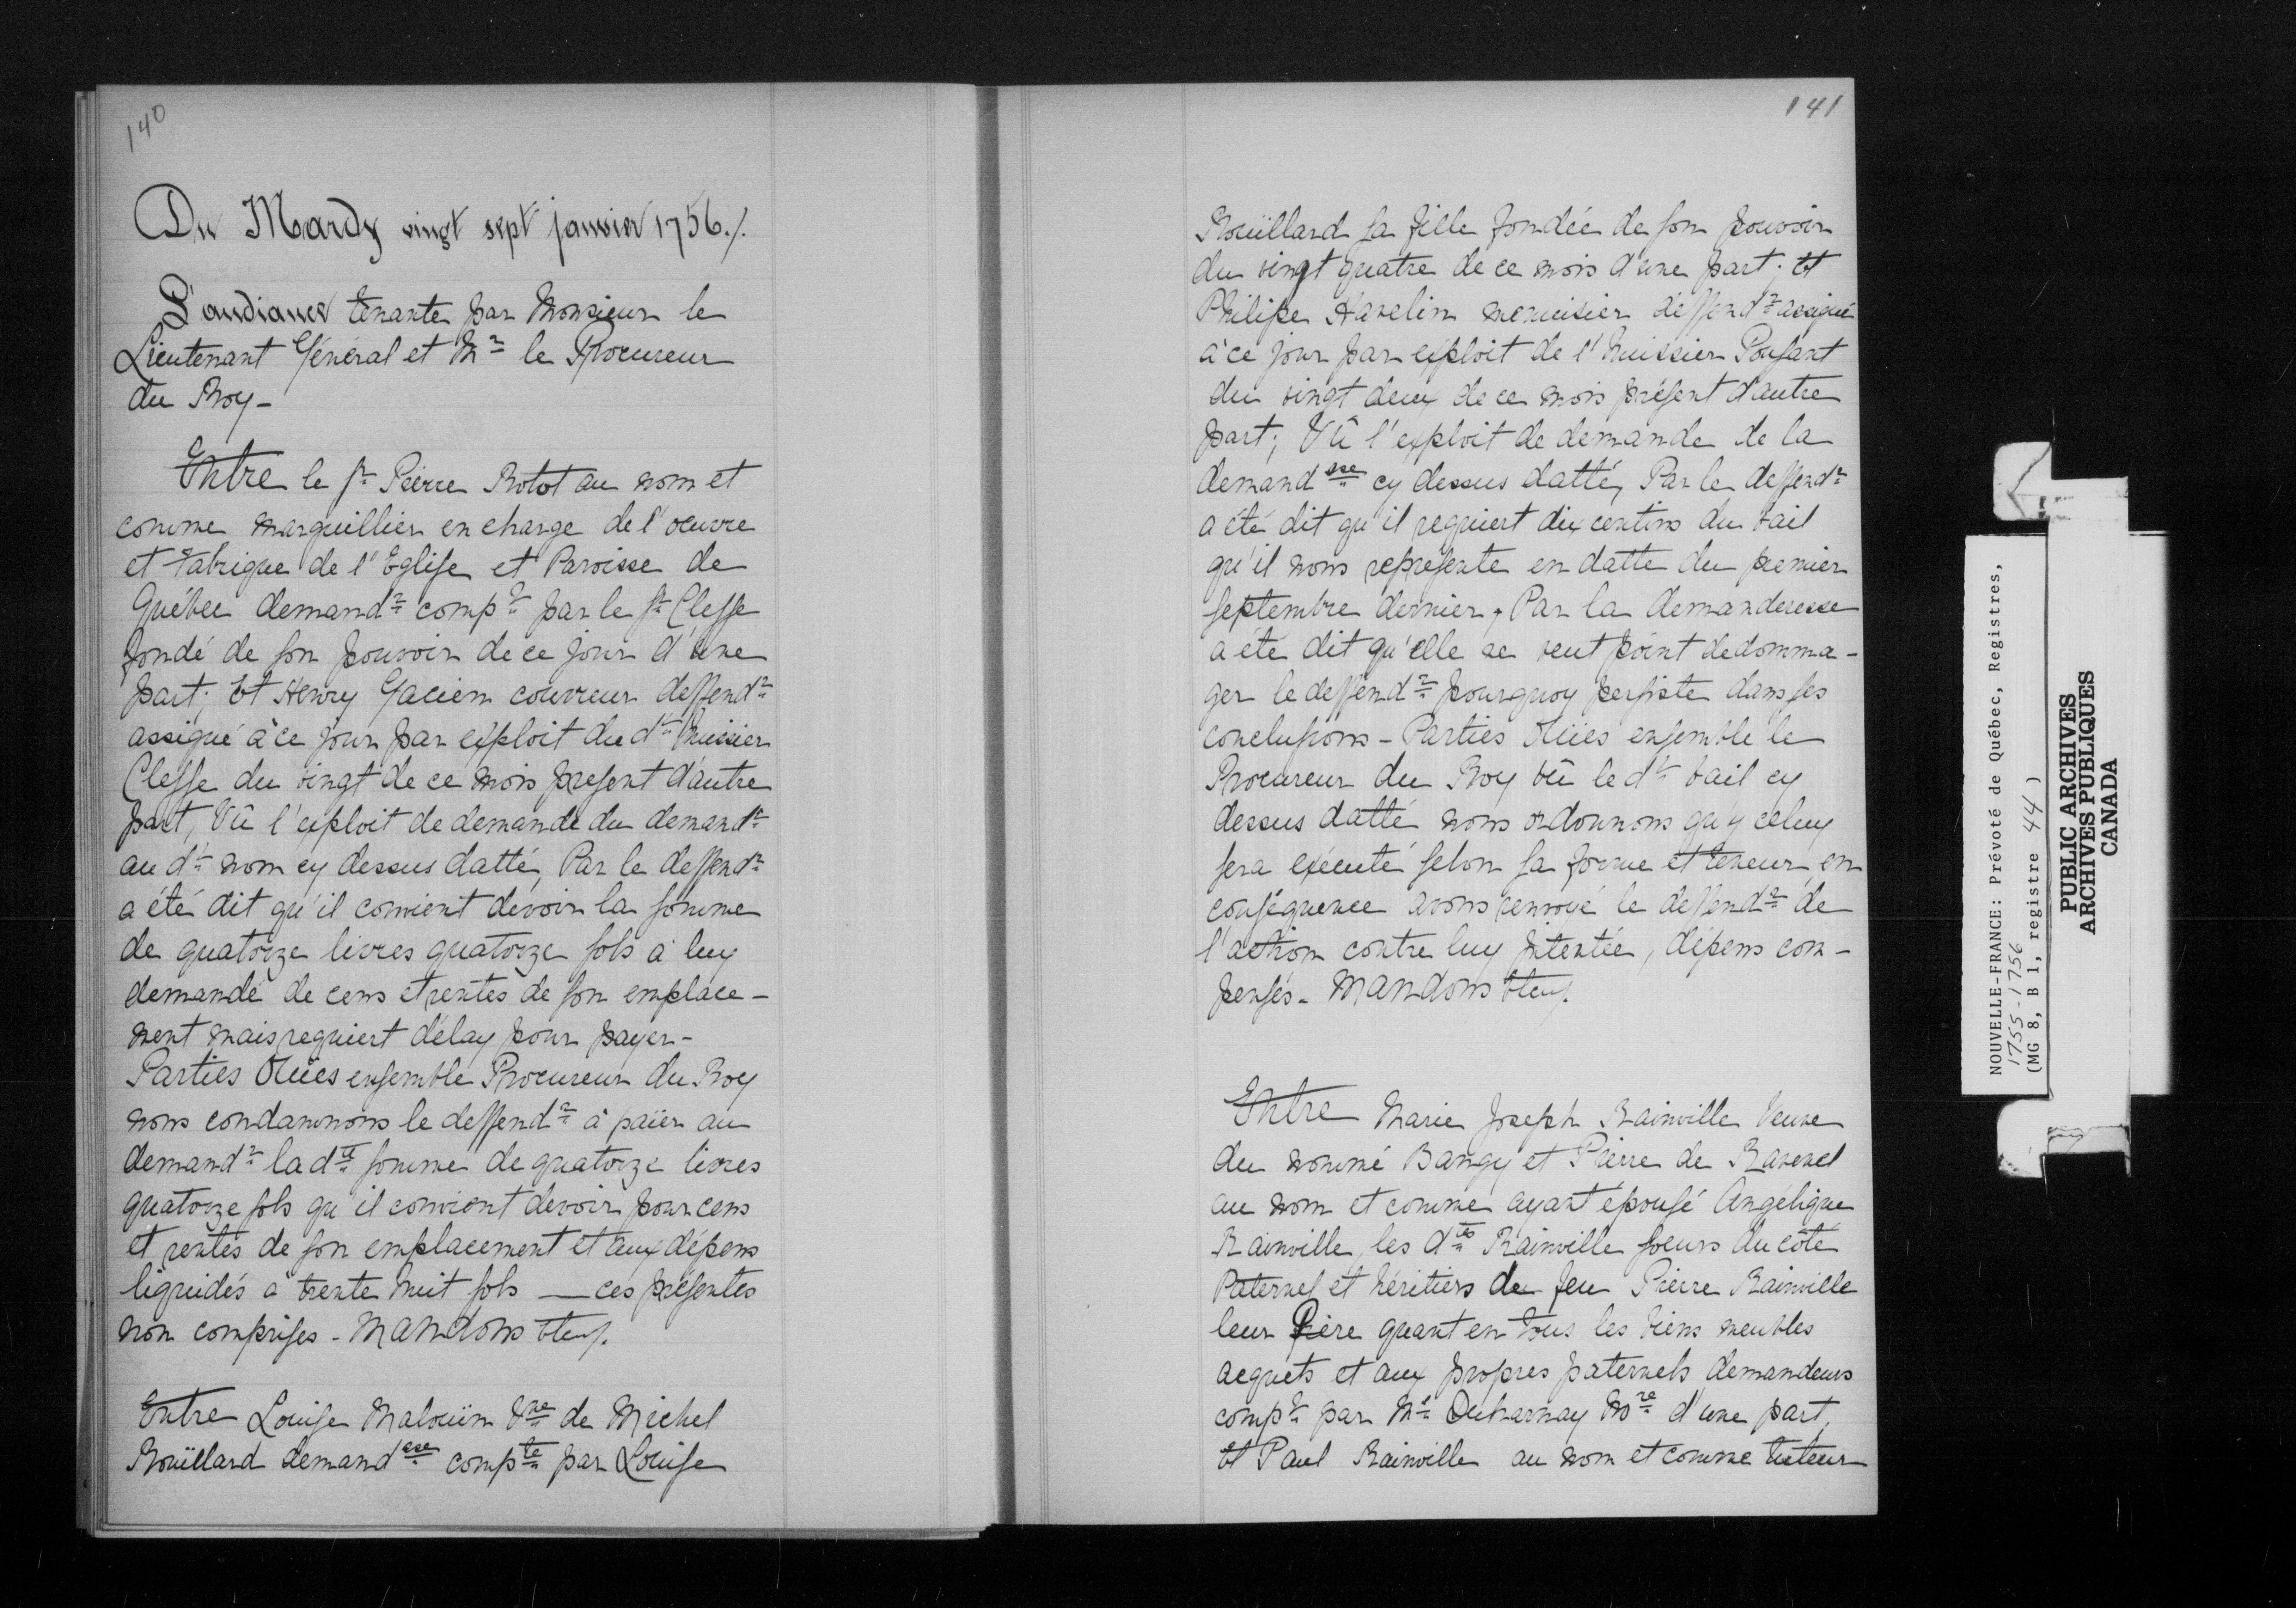 140
Du Mardy vingt sept janvier 1756./.
L'audiance tenante par Monsieur le
Lieutenant Général et Mr le Procureur
du Roy -
Entre le sr Pierre Rotot au nom et
comme marguillier en charge de l'oeuvre
et fabrique de l'Eglise et Paroisse de
Québec demandr compt par le sr Clesse
fondé de son pouvoir de ce jour d'une
part; Et Henry Gacien couvreur deffendr
assigné à ce jour par exploit du dt huissier
Clesse du vingt de ce mois present d'autre
part, Vû l'exploit de demande du demandr
au dt nom cy dessus datté, Par le deffendr
a été dit qu'il convient devoir la somme
de quatorze livres quatorze sols à luy
demandé de cens et rentes de son emplace-
ment mais requiert délay pour payer -
Parties Oüies ensemble Procureur du Roy
nous condamnons le deffendr à païer au
demandr la dte somme de quatorze livres
quatorze sols qu'il convient devoir pour cens
et rentes de son emplacement et aux dépens
liquidés à trente huit sols — ces présentes
non comprises - Mandons &c.
Entre Louise Malouin Vve de Michel
Roüillard demandsse compte par Louise
141
Roüillard sa fille fondée de son pouvoir
du vingt quatre de ce mois d'une part; Et
Philipe Havelin menuisier deffendr assigné
à ce jour par exploit de l'huissier Poussart
du vingt deux de ce mois présent d'autre
part; Vû l'exploit de demande de la
demandsse cy dessus datté, Par le deffendr
a été dit qu'il requiert dix centins du bail
qu'il nous represente en datte du premier
septembre dernier, Par la demanderesse
a été dit qu'elle ne veut point dedomma-
ger le deffendr pourquoy persiste dans ses
conclusions - Parties Oüies ensemble le
Procureur du Roy vû le dt bail cy
dessus datté nous ordonnons qu'y celuy
sera exécuté selon sa forme et teneur, en
conséquence avons renvoié le deffendr de
l'action contre luy intentée, dépens com-
pensés - Mandons &c.
Entre Marie Joseph Rainville Veuve
du nommé Bangy et Pierre de Ravenel
au nom et comme ayant épousé Angélique
Rainville, les dtes Rainville soeurs du côté
Paternel et héritiers de feu Pierre Rainville
leur Père quant en tous les biens meubles
acquets et aux propres paternels demandeurs
compt par Me Decharnay Nore d'une part,
Et Paul Rainville au nom et comme tuteur
NOUVELLE-FRANCE: Prévoté de Québec, Registres,
1755-1756
(MG 8, B 1, registre 44)
PUBLIC ARCHIVES
ARCHIVES PUBLIQUES
CANADA